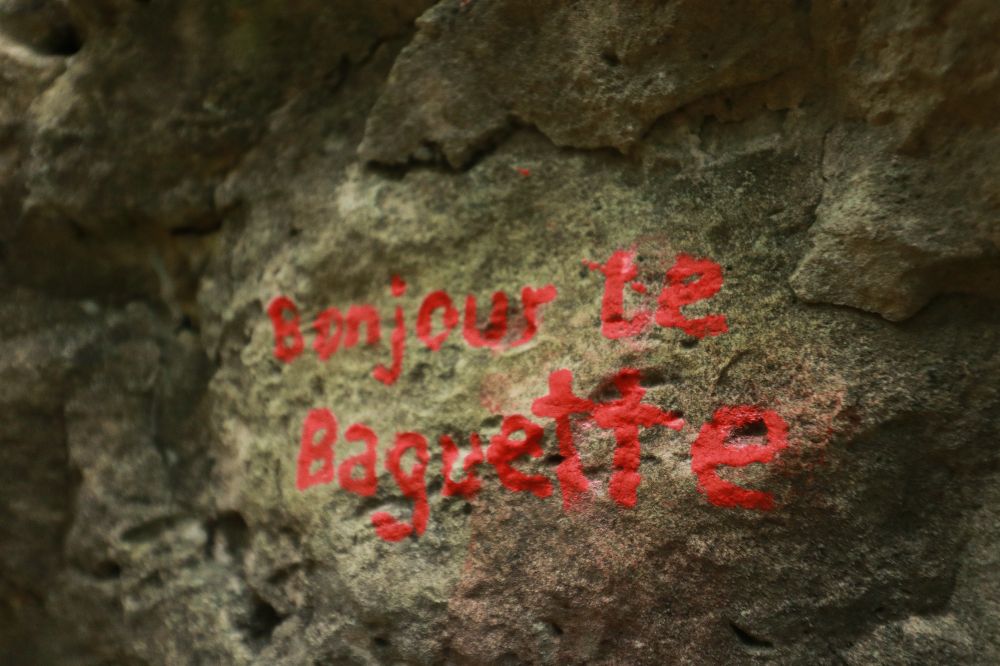 Bonjour te
Baguette